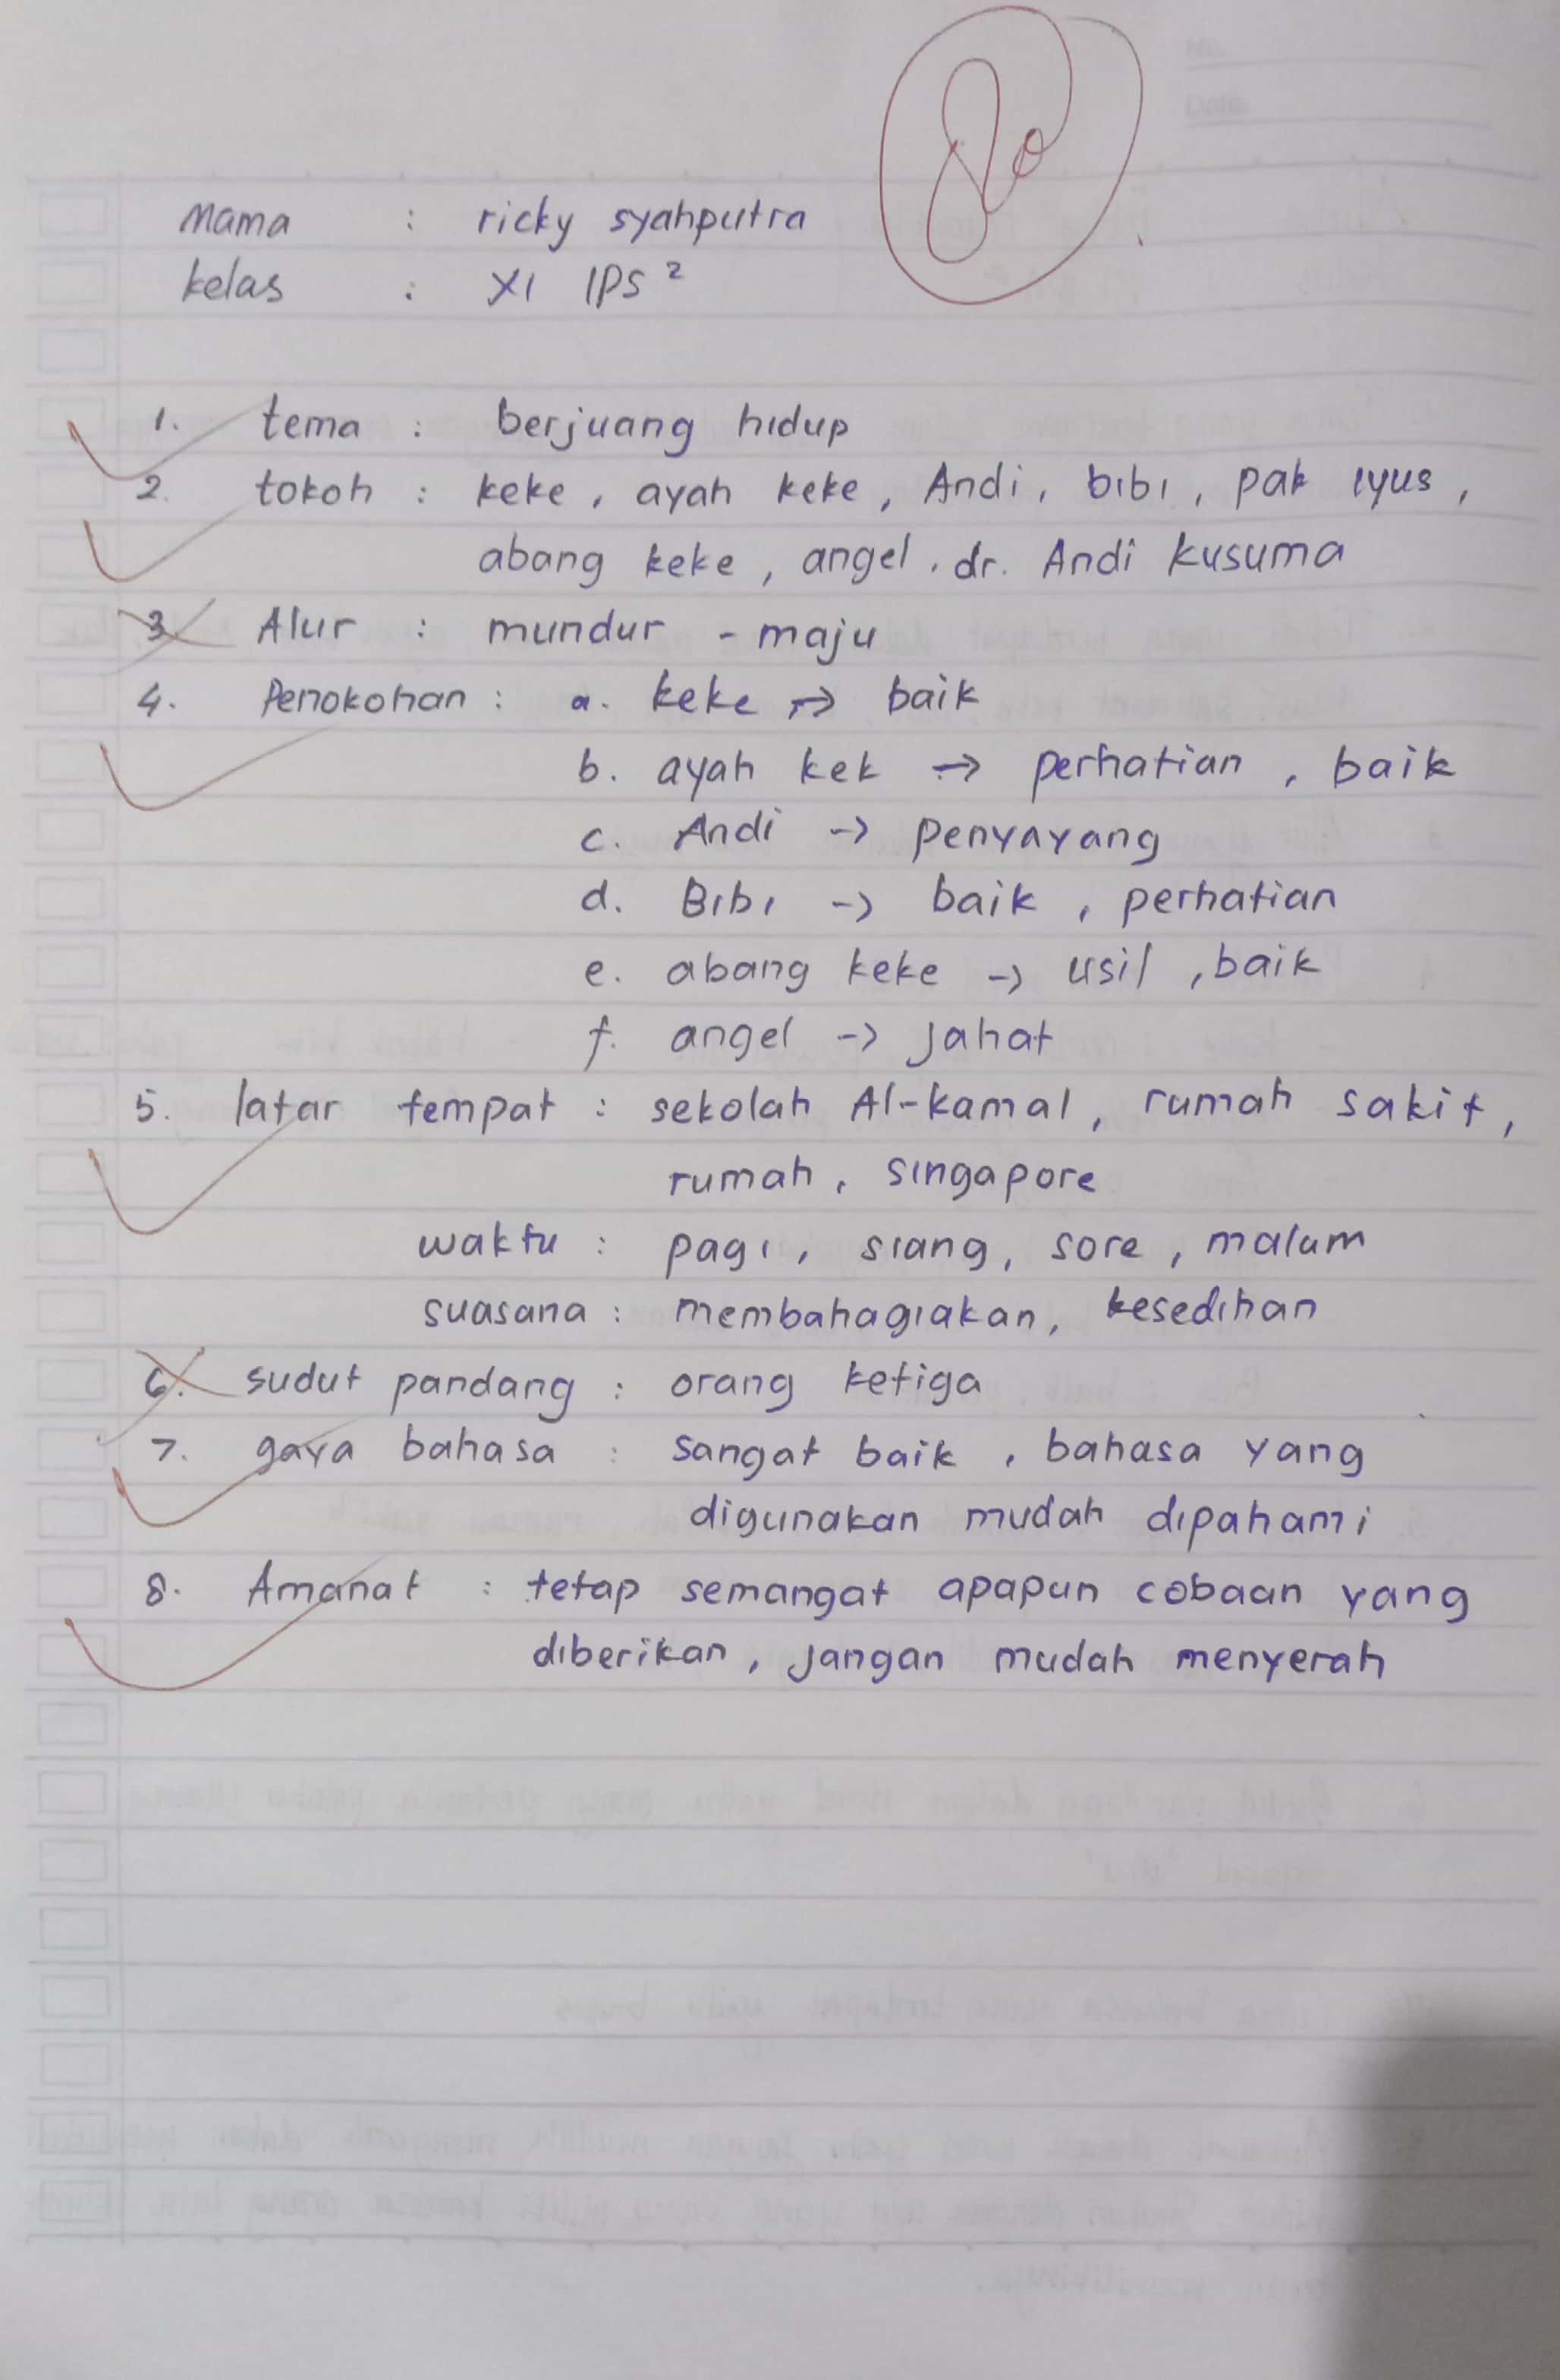 80
Nama : ricky syahputra
kelas : XI IPS 2
1. tema : berjuang hidup
2. tokoh : keke, ayah keke, Andi, bibi, pak iyus,
abang keke, angel, dr. Andi kusuma
3. Alur : mundur - maju
4. Penokohan : a. keke -> baik
b. ayah kek -> perhatian, baik
c. Andi -> penyayang
d. Bibi -> baik, perhatian
e. abang keke -> usil, baik
f. angel -> jahat
5. latar tempat : sekolah Al-kamal, rumah sakit,
rumah, singapore
waktu : pagi, siang, sore, malam
suasana : membahagiakan, kesedihan
6. sudut pandang : orang ketiga
7. gaya bahasa : sangat baik, bahasa yang
digunakan mudah dipahami
8. Amanat : tetap semangat apapun cobaan yang
diberikan, jangan mudah menyerah